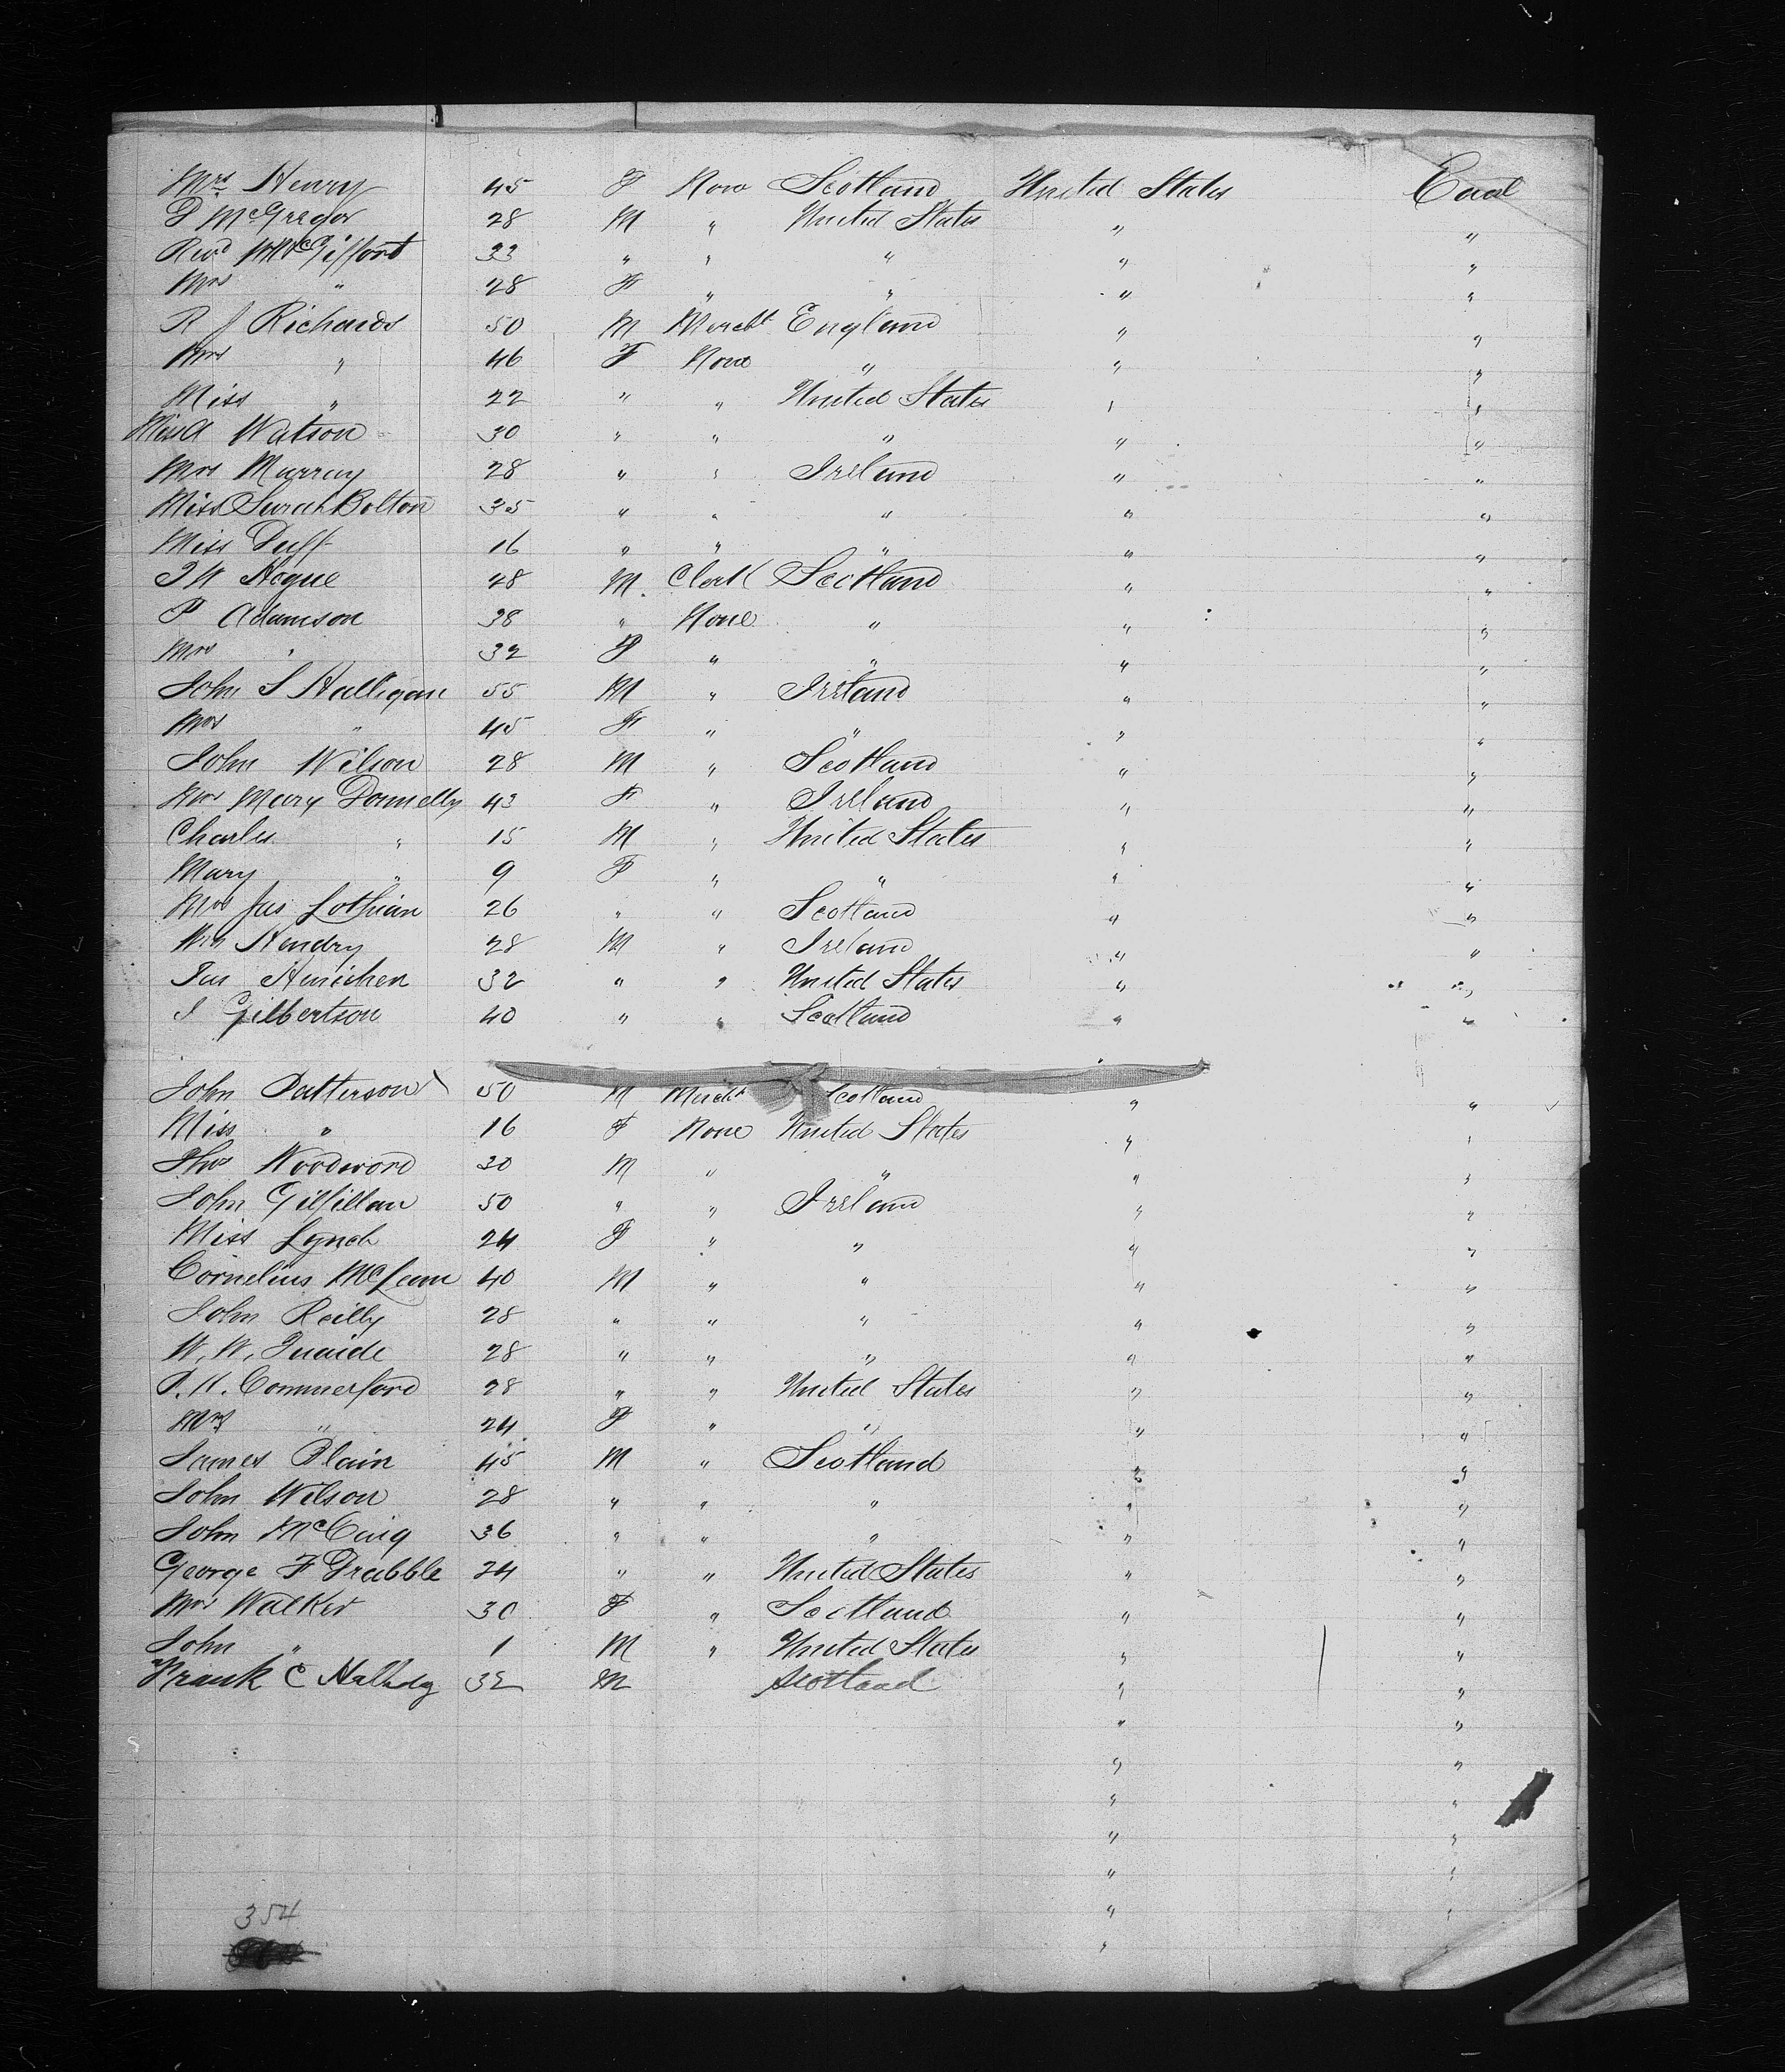 Mrs Henry 45 F None Scotland United States Cad
D McGregor 28 M " United States " "
Revd McGiffort 33 " " " " "
Mrs " 28 F " " " "
R J Richards 50 M Mercht England " "
Mrs " 46 F None " " "
Miss " 22 " " United States " "
Miss A Watson 30 " " " " "
Mrs Murray 28 " " Ireland " "
Miss Sarah Bolton 35 " " " " "
Miss Duff 16 " " " " "
Hogue 28 M. Clerk Scotland " "
P Adamson 38 " None " " "
Mrs " 32 F " " " "
John S Halligan 55 M " Ireland " "
Mrs " 45 F " " " "
John Wilson 28 M " Scotland " "
Mrs Mary Donnelly 43 F " Ireland " "
Charles " 15 M " United States " "
Mary " 9 F " " " "
Mrs Jas Lothian 26 " " Scotland " "
Wm Hendry 28 M " Ireland " "
Jas 32 " " United States " "
J Gilbertson 40 " " Scotland " "
John Patterson 50 M Mercht Scotland " "
Miss " 16 F None United States " "
Thos Woodword 30 M " " " "
John Gilfillan 50 " " Ireland " "
Miss Lynch 24 F " " " "
Cornelius McLean 40 M " " " "
John Reilly 28 " " " " "
W. W. Quaide 28 " " " " "
P. H. Commerford 28 " " United States " "
Mrs " 24 F " " " "
James Blain 45 M " Scotland " "
John Wilson 28 " " " " "
John McCuig 36 " " " " "
George F Drabble 24 " " United States " "
Mrs Walker 30 F " Scotland " "
John " 1 M " United States " "
Frank C 32 M Scotland " "
" "
" "
" "
" "
" "
" "
" 
354